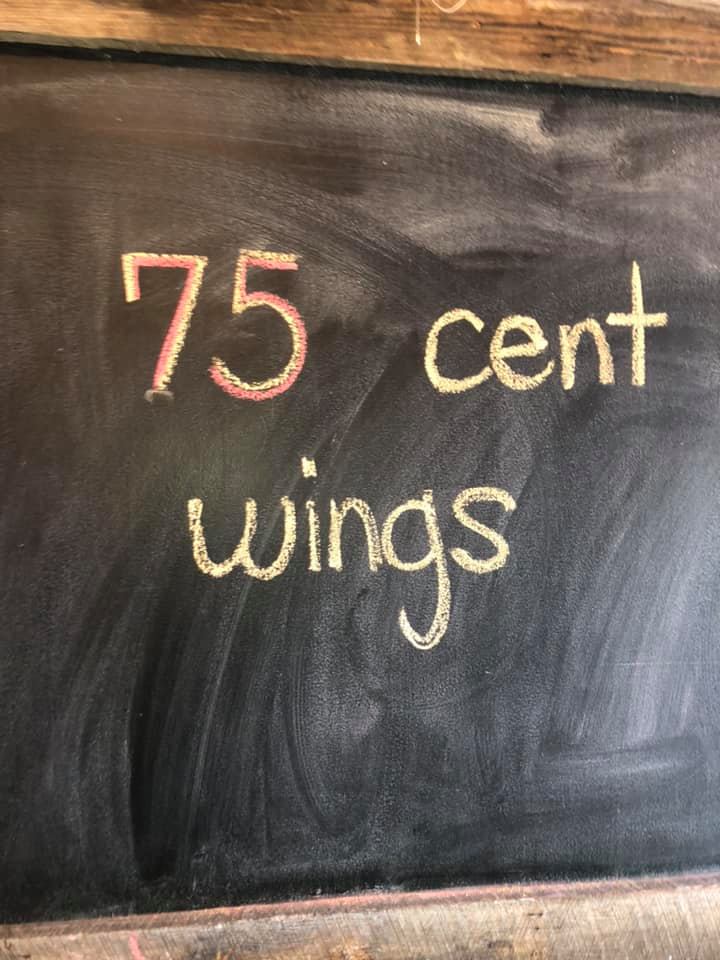 75 cent
wings